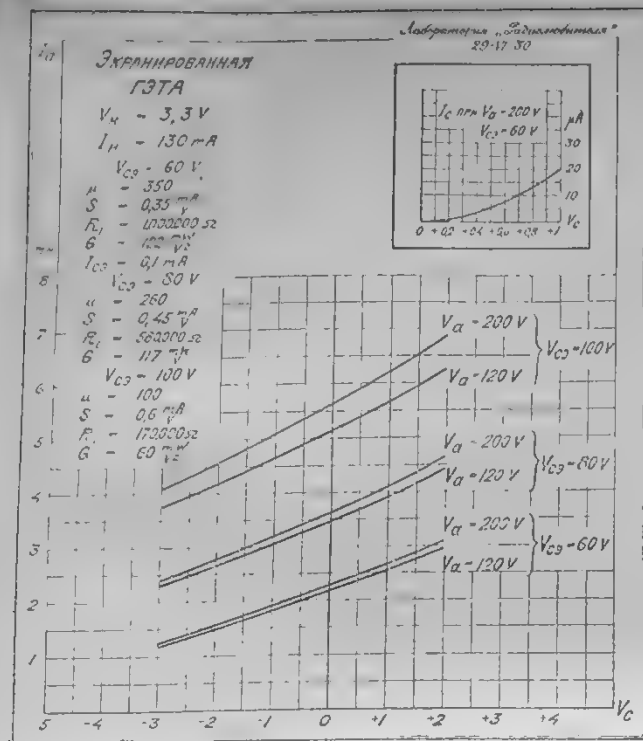 Лаборатория „Радиолюбителя"
29-VI 30
Ia
ЭКРАНИРОВАННАЯ
ГЭТА
Vн = 3,3 V
Iн = 130 mA
Vсэ = 60 V
μ = 350
S = 0,35 mA/V
Ri = 1,000,000 Ω
G = 122 mW/V²
Iсэ = 0,1 mA
Vсэ = 80 V
μ = 260
S = 0,45 mA/V
Ri = 580,000 Ω
G = 117 mW/V²
Vсэ = 100 V
μ = 100
S = 0,6 mA/V
Ri = 170,000 Ω
G = 60 mW/V²
Ic при Va = 200 V
Vсэ = 60 V
μA
30
20
10
Vc
0 +0,2 +0,4 +0,6 +0,8 +1
mA
8
7
6
5
4
3
2
1
Va = 200 V
Va = 120 V
Vсэ = 100 V
Va = 200 V
Va = 120 V
Vсэ = 80 V
Va = 200 V
Va = 120 V
Vсэ = 60 V
5 -4 -3 -2 -1 0 +1 +2 +3 +4 Vc